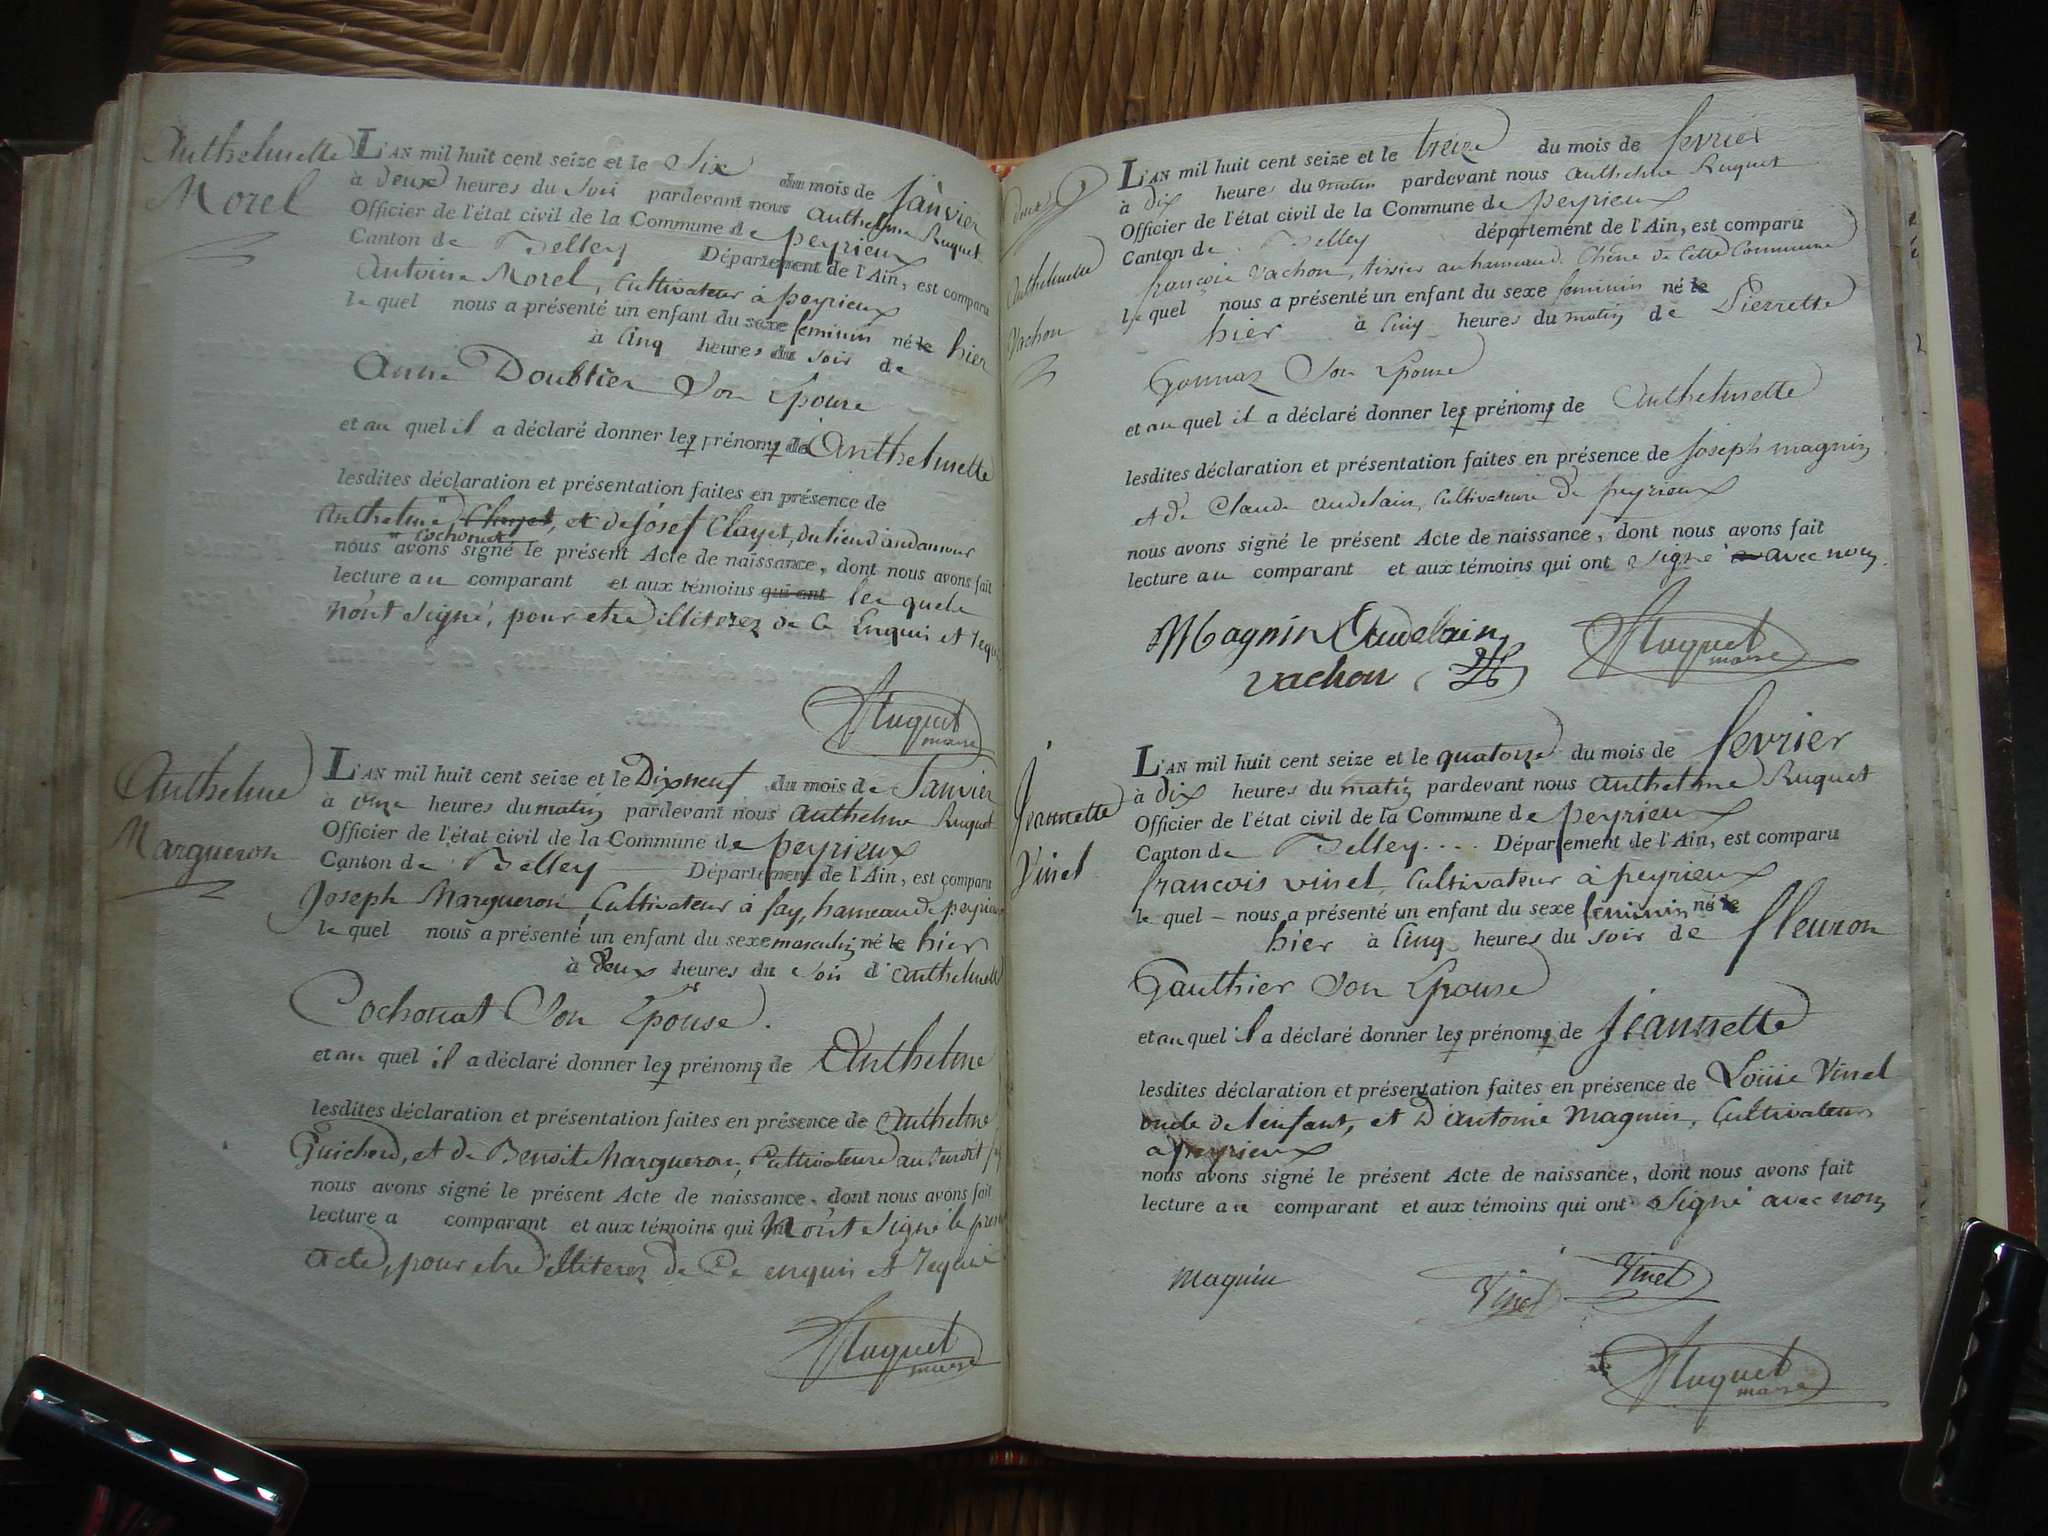 Anthelmette
Morel
L'AN mil huit cent seize et le Six du mois de Janvier
à deux heures du Soir pardevant nous Anthelme Ruguet
Officier de l'état civil de la Commune de peyrieux
Canton de Belley Département de l'Ain, est comparu
Antoine Morel, Cultivateur à peyrieux
le quel nous a présenté un enfant du sexe feminin né le hier
à Cinq heures du Soir de
Anne Doublier Son Epouse
et au quel il a déclaré donner les prénoms de Anthelmette
lesdites déclaration et présentation faites en présence de
Anthelme Clayet, et de Josef Clayet, du lieu d'andanour
Cochonat
nous avons signé le présent Acte de naissance, dont nous avons fait
lecture au comparant et aux témoins qui ont les quels
n'ont Signé, pour etre illiterez de Ce Enquis et requis
Ruguet
maire
Anthelme
Margueron
L'AN mil huit cent seize et le Dix neuf du mois de Janvier
à onze heures du matin pardevant nous Anthelme Ruguet
Officier de l'état civil de la Commune de peyrieux
Canton de Belley Département de l'Ain, est comparu
Joseph Margueron Cultivateur à fay, hameau de peyrieux
le quel nous a présenté un enfant du sexe masculin né le hier
à deux heures du Soir d'Anthelmette
Cochonat Son Epouse.
et au quel il a déclaré donner les prénoms de Anthelme
lesdites déclaration et présentation faites en présence de Anthelme
Guichard, et de Benoit Margueron, Cultivateurs au surdit fay
nous avons signé le présent Acte de naissance, dont nous avons fait
lecture a comparant et aux témoins qui n'ont Signé le present
acte, pour etre illiterez de Ce enquis et requis
Ruguet
maire
Anthelmette
Vachon
L'AN mil huit cent seize et le treize du mois de fevrier
à dix heures du matin pardevant nous Anthelme Ruguet
Officier de l'état civil de la Commune de peyrieux
Canton de Belley département de l'Ain, est comparu
françois Vachon, tissier au hameau de Chêne de Cette Commune
le quel nous a présenté un enfant du sexe feminin né le
hier à Cinq heures du matin de Pierrette
Gonnaz Son Epouse
et au quel il a déclaré donner les prénoms de Anthelmette
lesdites déclaration et présentation faites en présence de Joseph magnin
et de Claude Audelain, Cultivateurs de peyrieux
nous avons signé le présent Acte de naissance, dont nous avons fait
lecture au comparant et aux témoins qui ont signé avec nous.
Magnin Audelain
Vachon
Ruguet
maire
Jeannette
Vinet
L'AN mil huit cent seize et le quatorze du mois de fevrier
à dix heures du matin pardevant nous Anthelme Ruguet
Officier de l'état civil de la Commune de peyrieux
Canton de Belley.... Département de l'Ain, est comparu
francois vinet, Cultivateur à peyrieux
le quel nous a présenté un enfant du sexe feminin né le
hier à Cinq heures du soir de fleuron
Gauthier Son Epouse
et au quel il a déclaré donner les prénoms de Jeannette
lesdites déclaration et présentation faites en présence de Louïse Vinet
oncle de l'enfant, et D'antoine Magnin, Cultivateurs
a peyrieux
nous avons signé le présent Acte de naissance, dont nous avons fait
lecture au comparant et aux témoins qui ont signé avec nous
magnin Vinet Vinet
Ruguet
maire